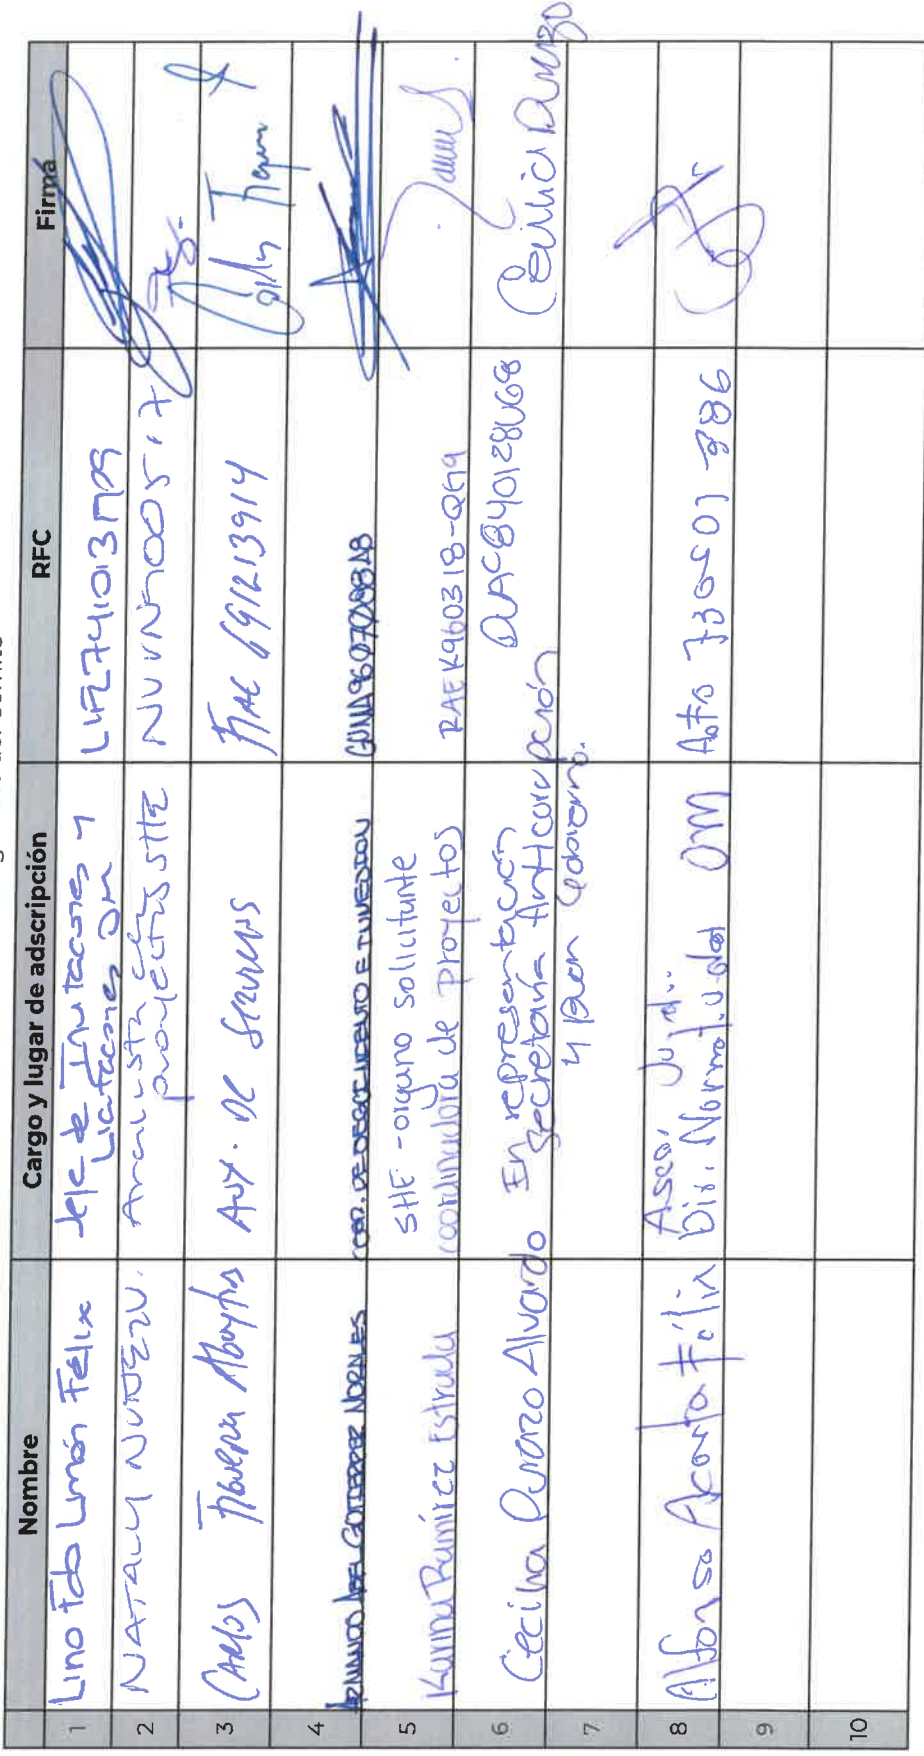 Nombre Cargo y lugar de adscripción RFC Firma
1 Lino Fdo Limón Félix Jefe de Invitaciones y Licitaciones OM LIFL741013
2 NATALY NUÑEZ V. Analista de proyectos SHE
3 CARLOS Aboytes AUX. DE SERVICIOS 691213914
4 ARMANDO ABEL GUTIERREZ NORALES COOR. DE DESARROLLO E INVERSION GUNA960702
5 Karina Ramírez Estrada SHE - organo solicitante
coordinadora de proyectos RAEK960318-QG9
6 Cecilia Durazo Alvarado En representación
Secretaría Anticorrupción
y Buen Gobierno. DUAC840128UG8 Cecilia Durazo
7
8 Alfonso Acosta Félix Dir. Normatividad OM AOFA 730501
9
10